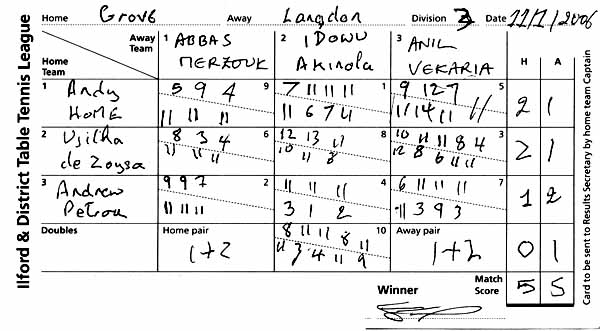 Ilford & District Table Tennis League
Home Grove Away Langdon Division 3 Date 11/1/2006
Away Team 1 ABBAS MERZOUK 2 IDOWU Akinola 3 ANIL VEKARIA H A
Home Team
1 Andy HOME 9 1 5 2 1
5 9 4 7 11 11 11 9 12 7
11 11 11 11 6 7 4 11 14 11
2 de Zoysa 6 8 3 2 1
8 3 4 12 13 11 10 11 11 8 4
11 11 11 10 11 8 12 8 6 11 11
3 Andrew Petrou 2 4 7 1 2
9 9 7 11 11 11 6 11 11 11
11 11 11 3 1 2 11 3 9 3
Doubles Home pair 1+2 10 Away pair 1+2 0 1
8 11 11 8 11
11 3 4 11 9
Winner Match Score 5 5
Card to be sent to Results Secretary by home team Captain